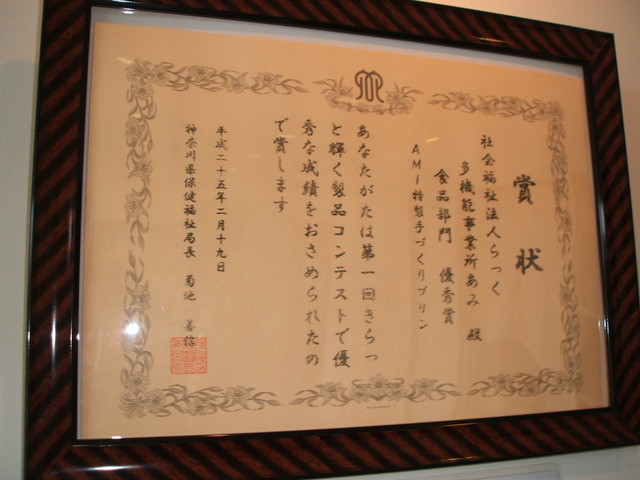 賞状
社会福祉法人らっく
多機能事業所あみ 殿
食品部門 優秀賞
AMI特製手づくりプリン
あなたがたは第一回きらっ
と輝く製品コンテストで優
秀な成績をおさめられたの
で賞します
平成二十五年二月十九日
神奈川県保健福祉局長 菊池 善信